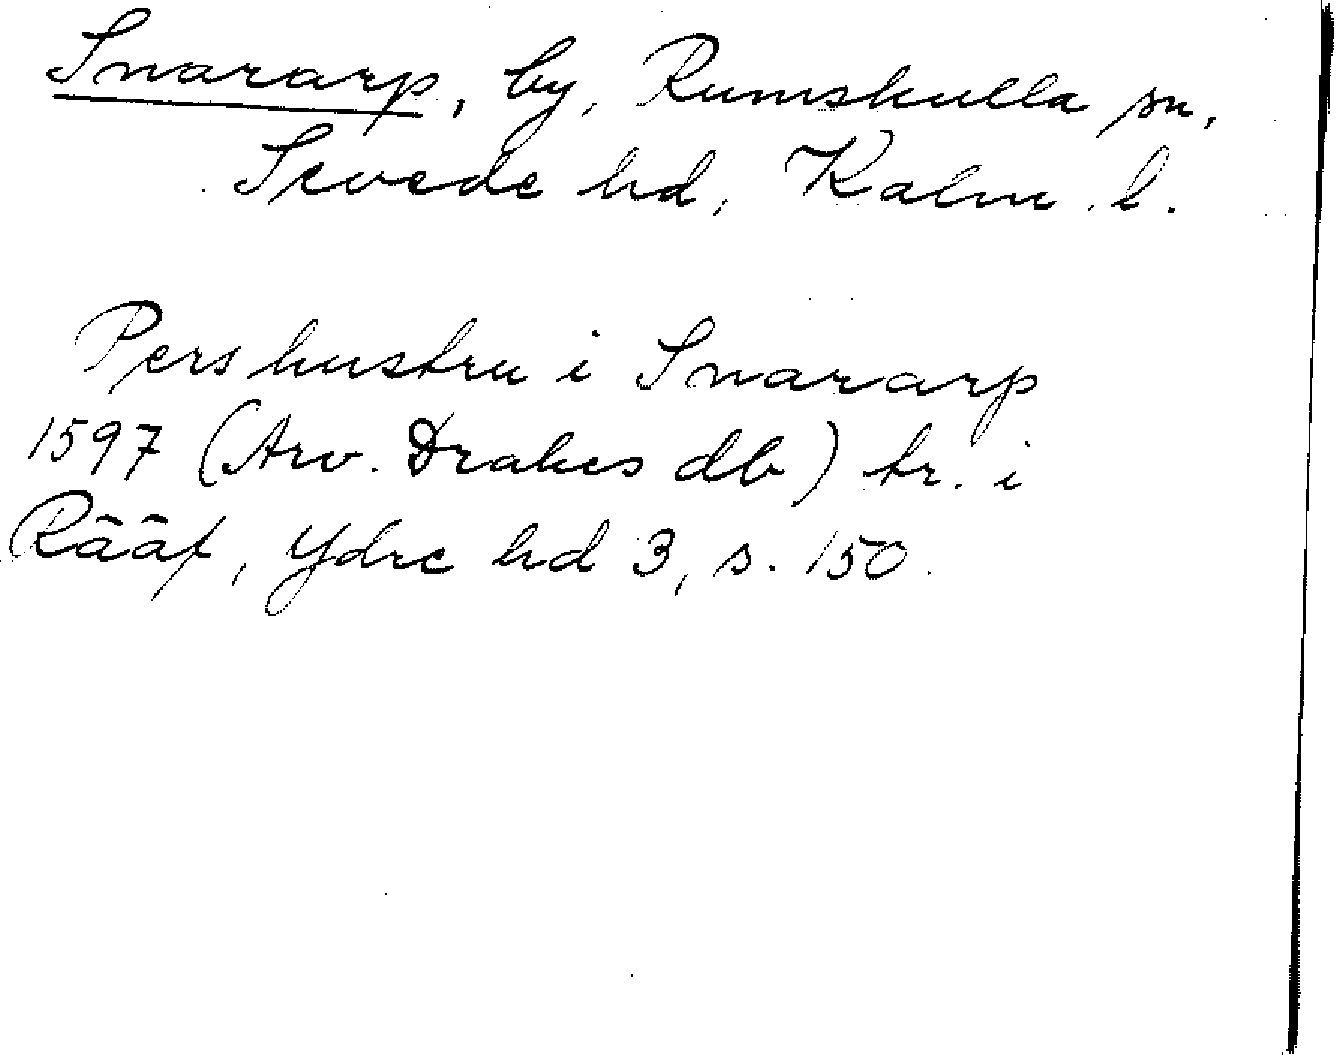 Snararp, by, Rumskulla sn,
Sevede hd, Kalm. l.
Pers hustru i Snararp
1597 (Arv. Drakes db) tr. i
Rääf, Ydre hd 3, s. 150.